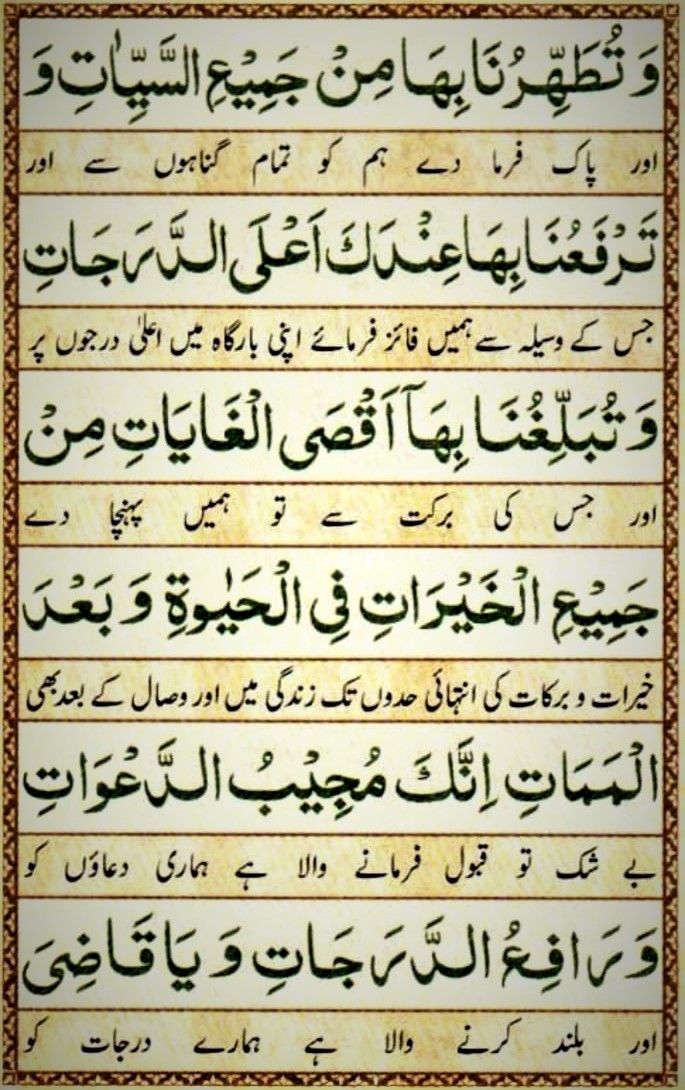 وَ تُطَهِّرُنَا بِهَا مِنْ جَمِيْعِ السَّيِّاٰتِ وَ
اور پاک فرما دے ہم کو تمام گناہوں سے اور
تَرْفَعُنَا بِهَا عِنْدَكَ اَعْلَى الدَّرَجَاتِ
جس کے وسیلہ سے ہمیں فائز فرمائے اپنی بارگاہ میں اعلیٰ درجوں پر
وَ تُبَلِّغُنَا بِهَآ اَقْصَى الْغَايَاتِ مِنْ
اور جس کی برکت سے تو ہمیں پہنچا دے
جَمِيْعِ الْخَيْرَاتِ فِي الْحَيٰوةِ وَ بَعْدَ
خیرات و برکات کی انتہائی حدوں تک زندگی میں اور وصال کے بعد بھی
الْمَمَاتِ اِنَّكَ مُجِيْبُ الدَّعْوَاتِ
بے شک تو قبول فرمانے والا ہے ہماری دعاؤں کو
وَ رَافِعُ الدَّرَجَاتِ وَ يَا قَاضِيَ
اور بلند کرنے والا ہے ہمارے درجات کو